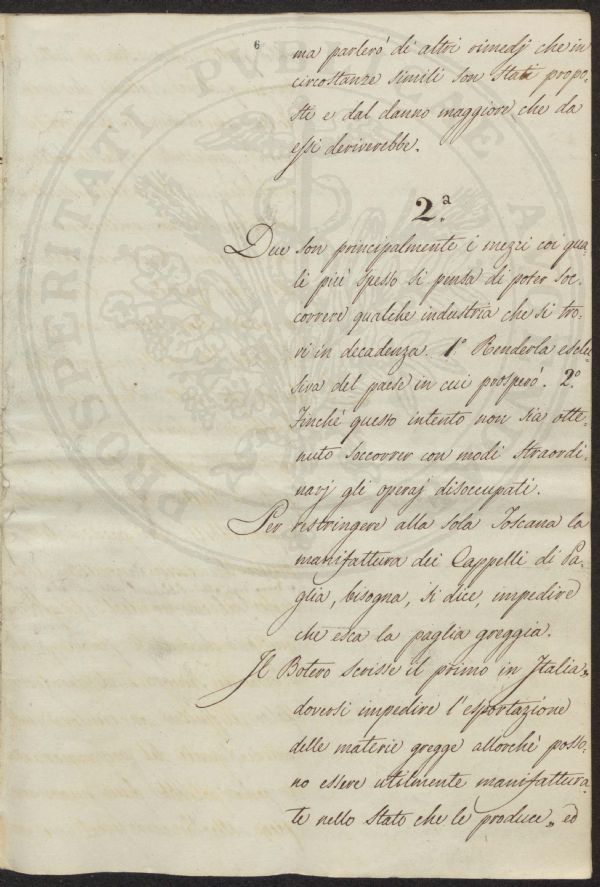 6
ma parlerò di altri rimedj che in
circostanze simili son stati propo-
ste e dal danno maggiore che da
essi deriverebbe.
2.ª
Due son principalmente i mezzi coi qua-
li più spesso si pensa di poter soc-
correre qualche industria che si tro-
vi in decadenza. 1º Renderla esclu-
siva del paese in cui prosperò. 2º
Finchè questo intento non sia otte-
nuto soccorrer con modi straordi-
narj gli operaj disoccupati.
Per restringere alla sola Toscana la
manifattura dei Cappelli di Pa-
glia, bisogna, si dice, impedire
che esca la paglia greggia.
Il Botero scrisse il primo in Italia „
doversi impedire l'esportazione
delle materie gregge allorchè posso-
no essere utilmente manifattura-
te nello Stato che le produce „ ed
PROSPERITATI PVBLICAE A